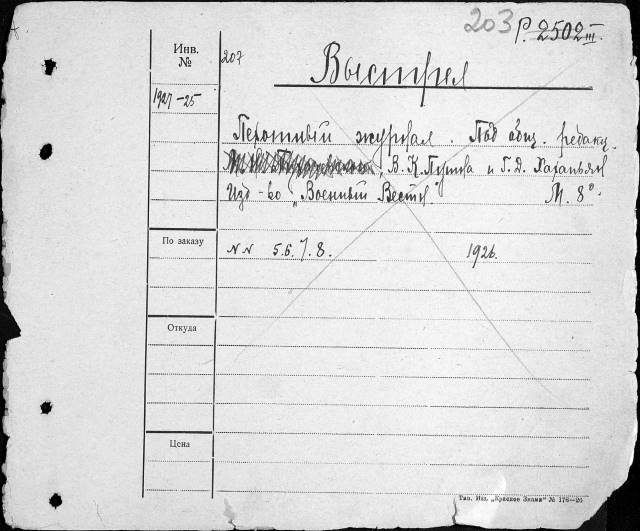 203 Р. 2502 III.
Инв.
№
207
Выстрел
1927-25
журнал. Под общ. редакц.
В. К. Путна и Г. Д. Хаханьян
Изд-во „Военный Вестн." М. 8°
По заказу
NN 5.6.7.8. 1926.
Откуда
Цена
Тип. Изд. „Красное Знамя" № 178—26